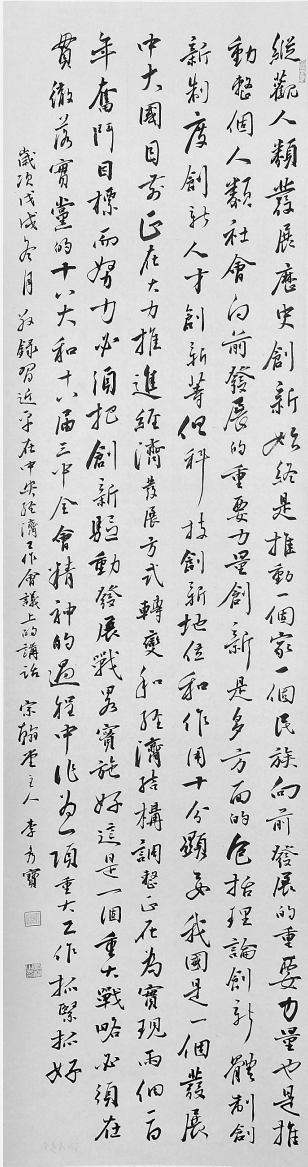 縱觀人類發展歷史創新始終是推動一個家一個民族向前發展的重要力量也是推
動整個人類社會向前發展的重要力量創新是多方面的包括理論創新體制創
新制度創新人才創新等但科技創新地位和作用十分顯要我國是一個發展
中大國目前正在大力推進經濟發展方式轉變和經濟結構調整正在為實現兩個一百
年奮鬥目標而努力必須把創新驅動發展戰略實施好這是一個重大戰略必須在
貫徹落實黨的十八大和十八屆三中全會精神的過程中作為一項重大工作抓緊抓好
歲次戊戌冬月敬錄習近平在中央經濟工作會議上的講話 宗翰堂主人 李方寶